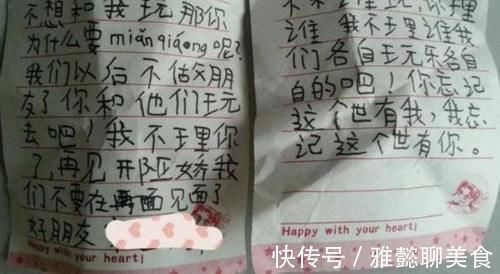 不想和我玩那你
为什么要miǎnqiǎng呢?
我们以后不做好朋
友了你和他们玩
去吧!我不理你
了,再见
们不要在再面见面了
好朋友
Happy with your heart!
谁我不理谁我
们各自玩乐各自
自的吧!你忘记
这个世有我,我忘
记这个世有你。
Happy with your heart!
快传号/雅懿聊美食